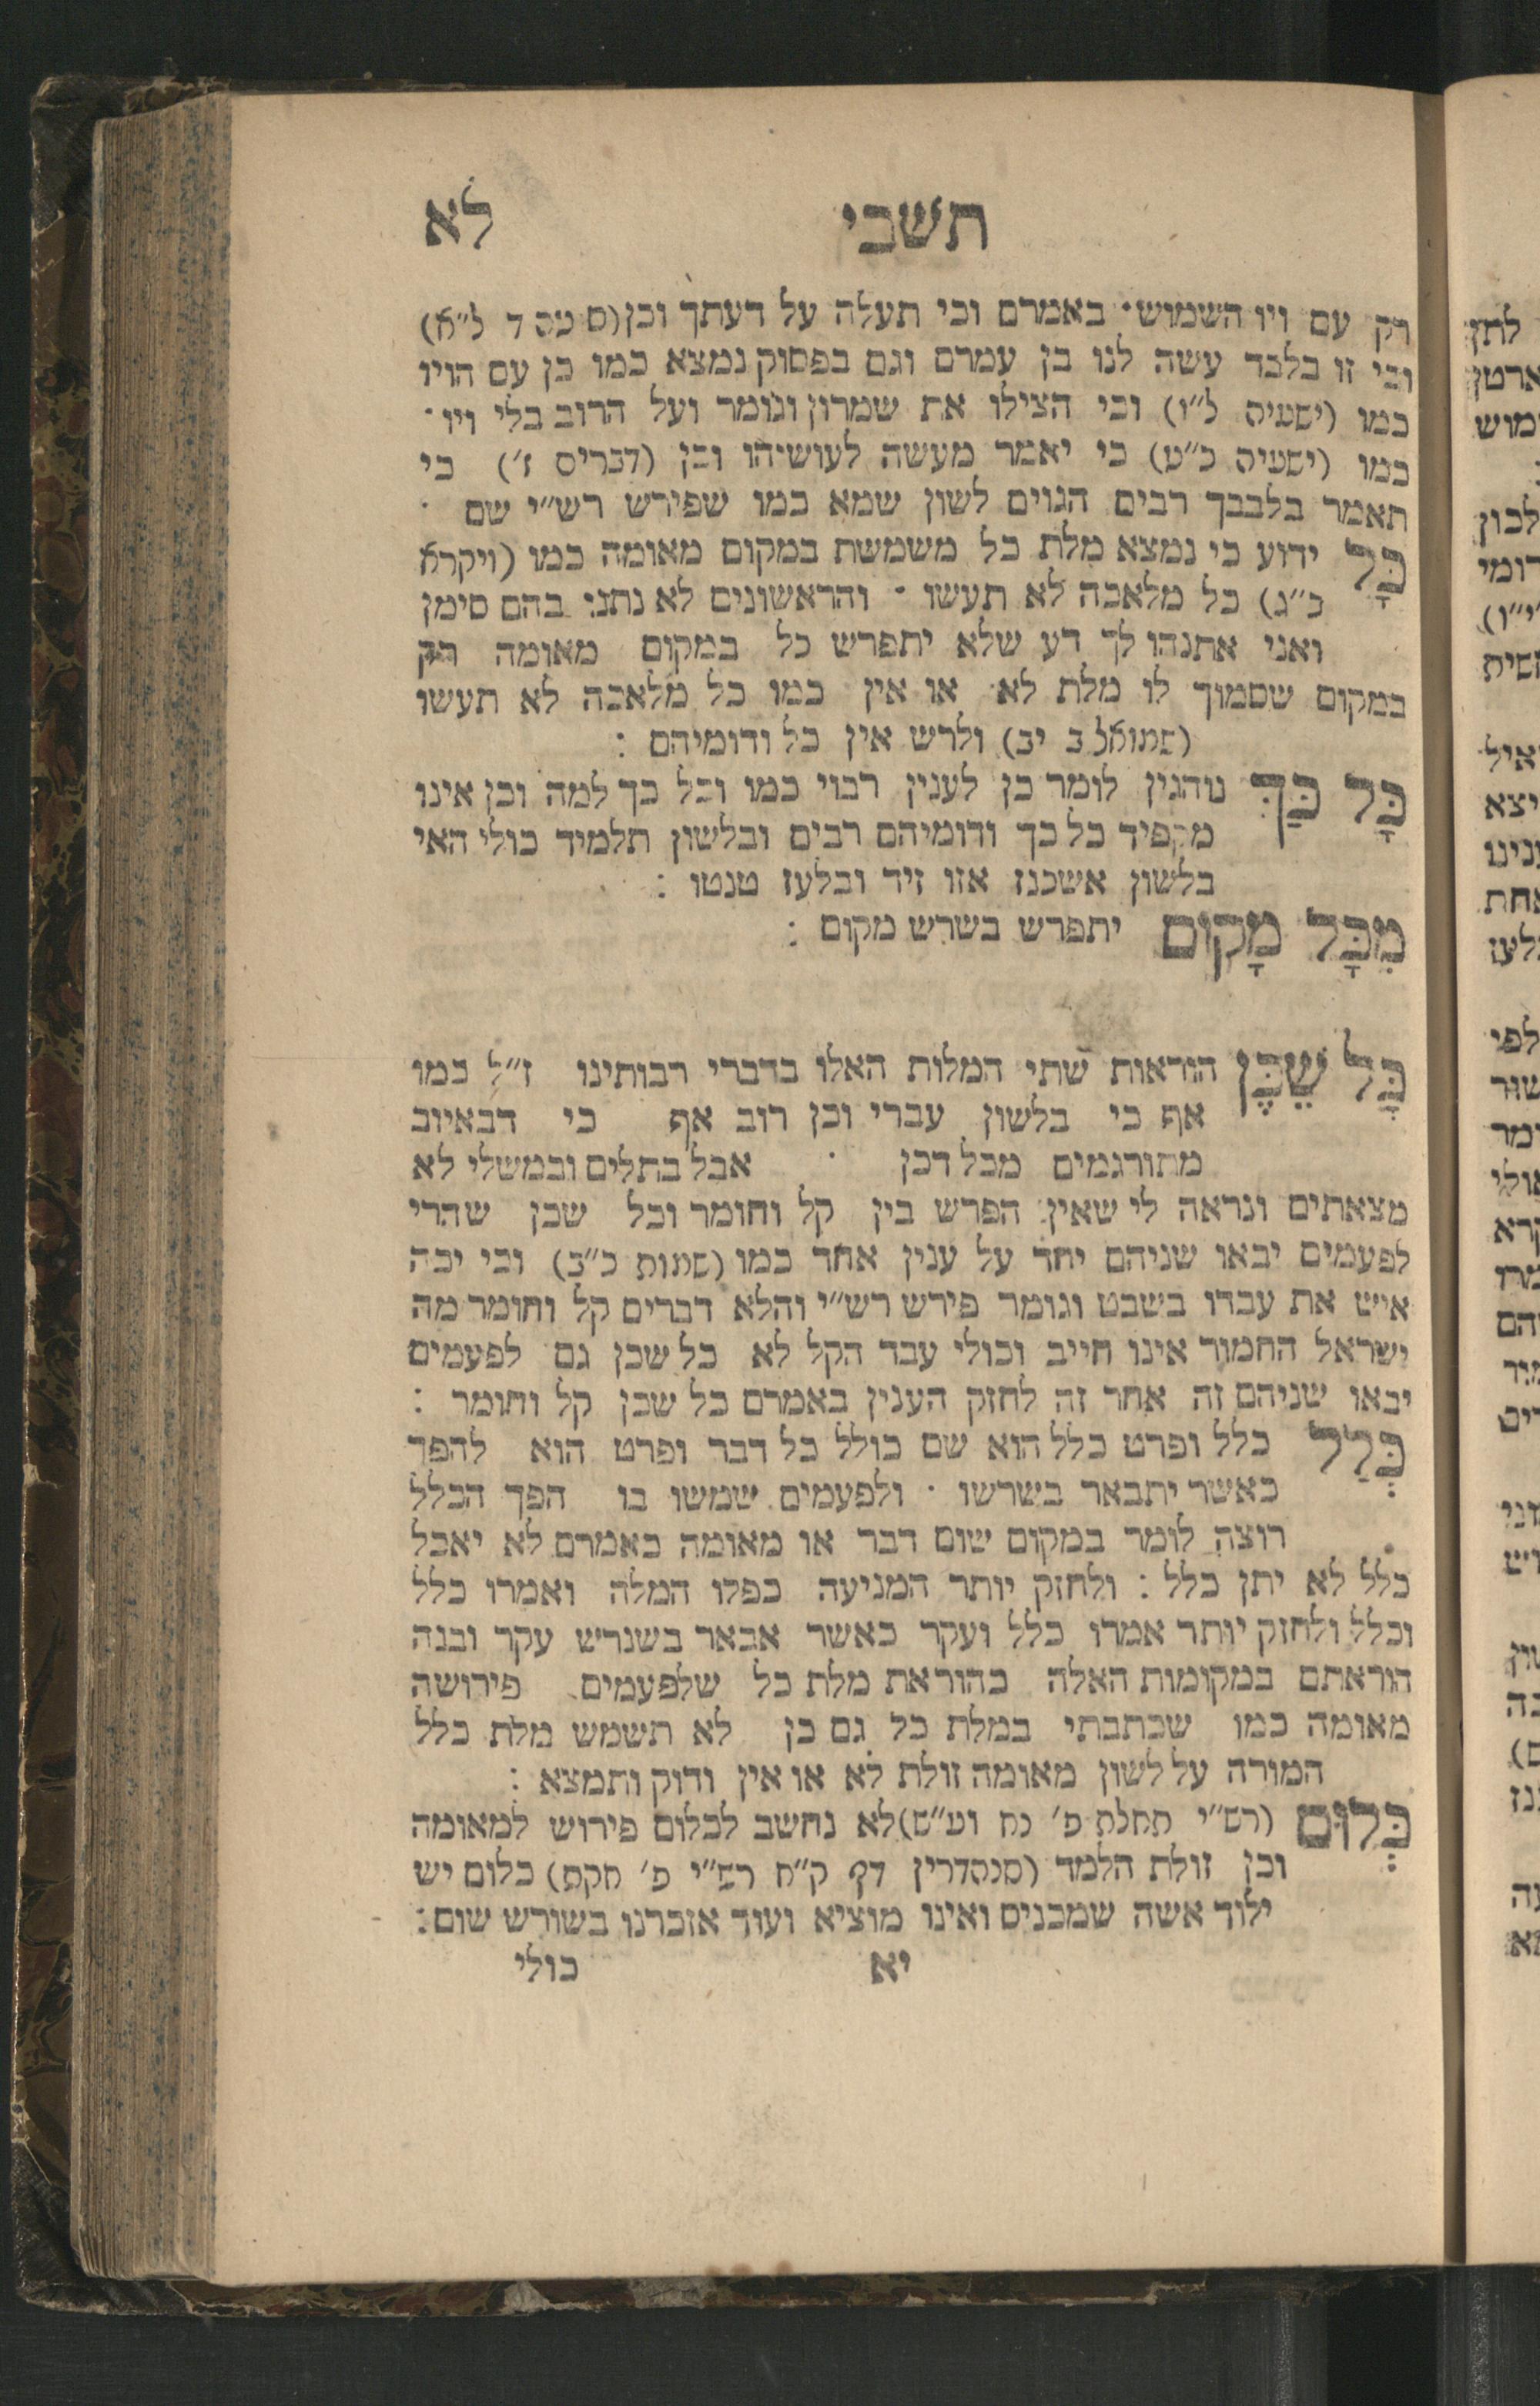 תשבי לא
רק עם ויו השמוש· באמרם וכי תעלה על דעתך וכן (
וכי זו בלבד עשה לנו בן עמרם וגם בפסוק נמצא כמו כן עם הויו
כמו (ישעיה ל״ו) וכי הצילו את שמרון וגומר ועל הרוב בלי ויו·
כמו (ישעיה כ״ט) כי יאמר מעשה לעושיהו וכן (דברים ז׳) כי
תאמר בלבבך רבים הגוים לשון שמא כמו שפירש רש״י שם ·
כָּל ידוע כי נמצא מלת כל משמשת במקום מאומה כמו (ויקרא
כ״ג) כל מלאכה לא תעשו · והראשונים לא נתנו בהם סימן
ואני אתנהו לך דע שלא יתפרש כל במקום מאומה רק
במקום שסמוך לו מלת לא או אין כמו כל מלאכה לא תעשו
(שמואל ב יב) ולרש אין כל ודומיהם :
כָּל כַּךְ נוהגין לומר כן לענין רבוי כמו וכל כך למה וכן אינו
מקפיד כל כך ודומיהם רבים ובלשון תלמיד כולי האי
בלשון אשכנז אזו זיד ובלעז טנטו :
מִכָּל מָקוֹם יתפרש בשרש מקום :
כָּל שֶׁכֵּן הוראות שתי המלות האלו בדברי רבותינו ז״ל כמו
אף כי בלשון עברי וכן רוב אף כי דבאיוב
מתורגמים מכל דכן · אבל בתלים ובמשלי לא
מצאתים ונראה לי שאין הפרש בין קל וחומר וכל שכן שהרי
לפעמים יבאו שניהם יחד על ענין אחד כמו (שמות כ״ב) וכי יכה
איש את עבדו בשבט וגומר פירש רש״י והלא דברים קל וחומר מה
ישראל החמור אינו חייב וכולי עבד הקל לא כל שכן גם לפעמים
יבאו שניהם זה אחר זה לחזק הענין באמרם כל שכן קל וחומר :
כְּלַל כלל ופרט כלל הוא שם כולל כל דבר ופרט הוא להפך
כאשר יתבאר בשרשו · ולפעמים שמשו בו הפך הכלל
רוצה לומר במקום שום דבר או מאומה כאמרם לא יאכל
כלל לא יתן כלל : ולחזק יותר המניעה כפלו המלה ואמרו כלל
וכלל ולחזק יותר אמרו כלל ועקר כאשר אבאר בשרש עקר ובנה
הוראתם במקומות האלה כהוראת מלת כל שלפעמים פירושה
מאומה כמו שכתבתי במלת כל גם כן לא תשמש מלת כלל
המורה על לשון מאומה זולת לא או אין ודוק ותמצא :
כְּלוּם (רש״י תחלת פ׳ נח וע״ש) לא נחשב לכלום פירוש למאומה
וכן זולת הלמד (סנהדרין דף ק״ח רש״י פ׳ חקת) כלום יש
ילוד אשה שמכניס ואינו מוציא ועוד אזכרנו בשורש שום:
יא כולי